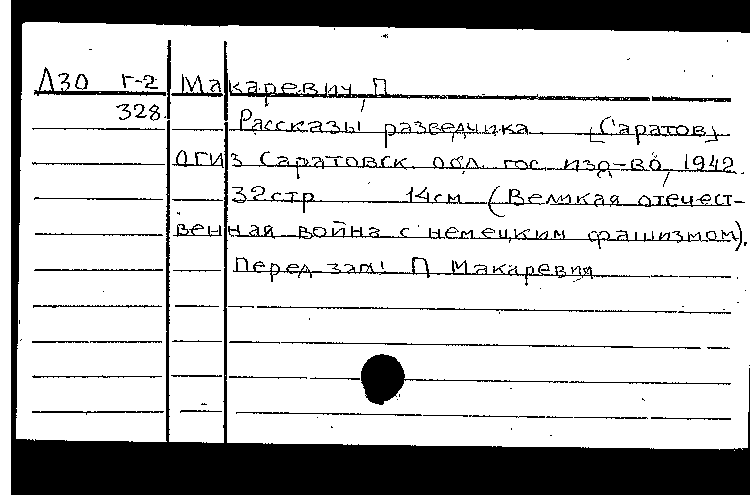 Л30 Г-2 Макаревич, П
328 Рассказы разведчика. [Саратов]
ОГИЗ Саратовск. обл. гос. изд-во, 1942.
32 стр. 14 см (Великая отечест-
венная война с немецким фашизмом).
Перед загл: П Макаревич